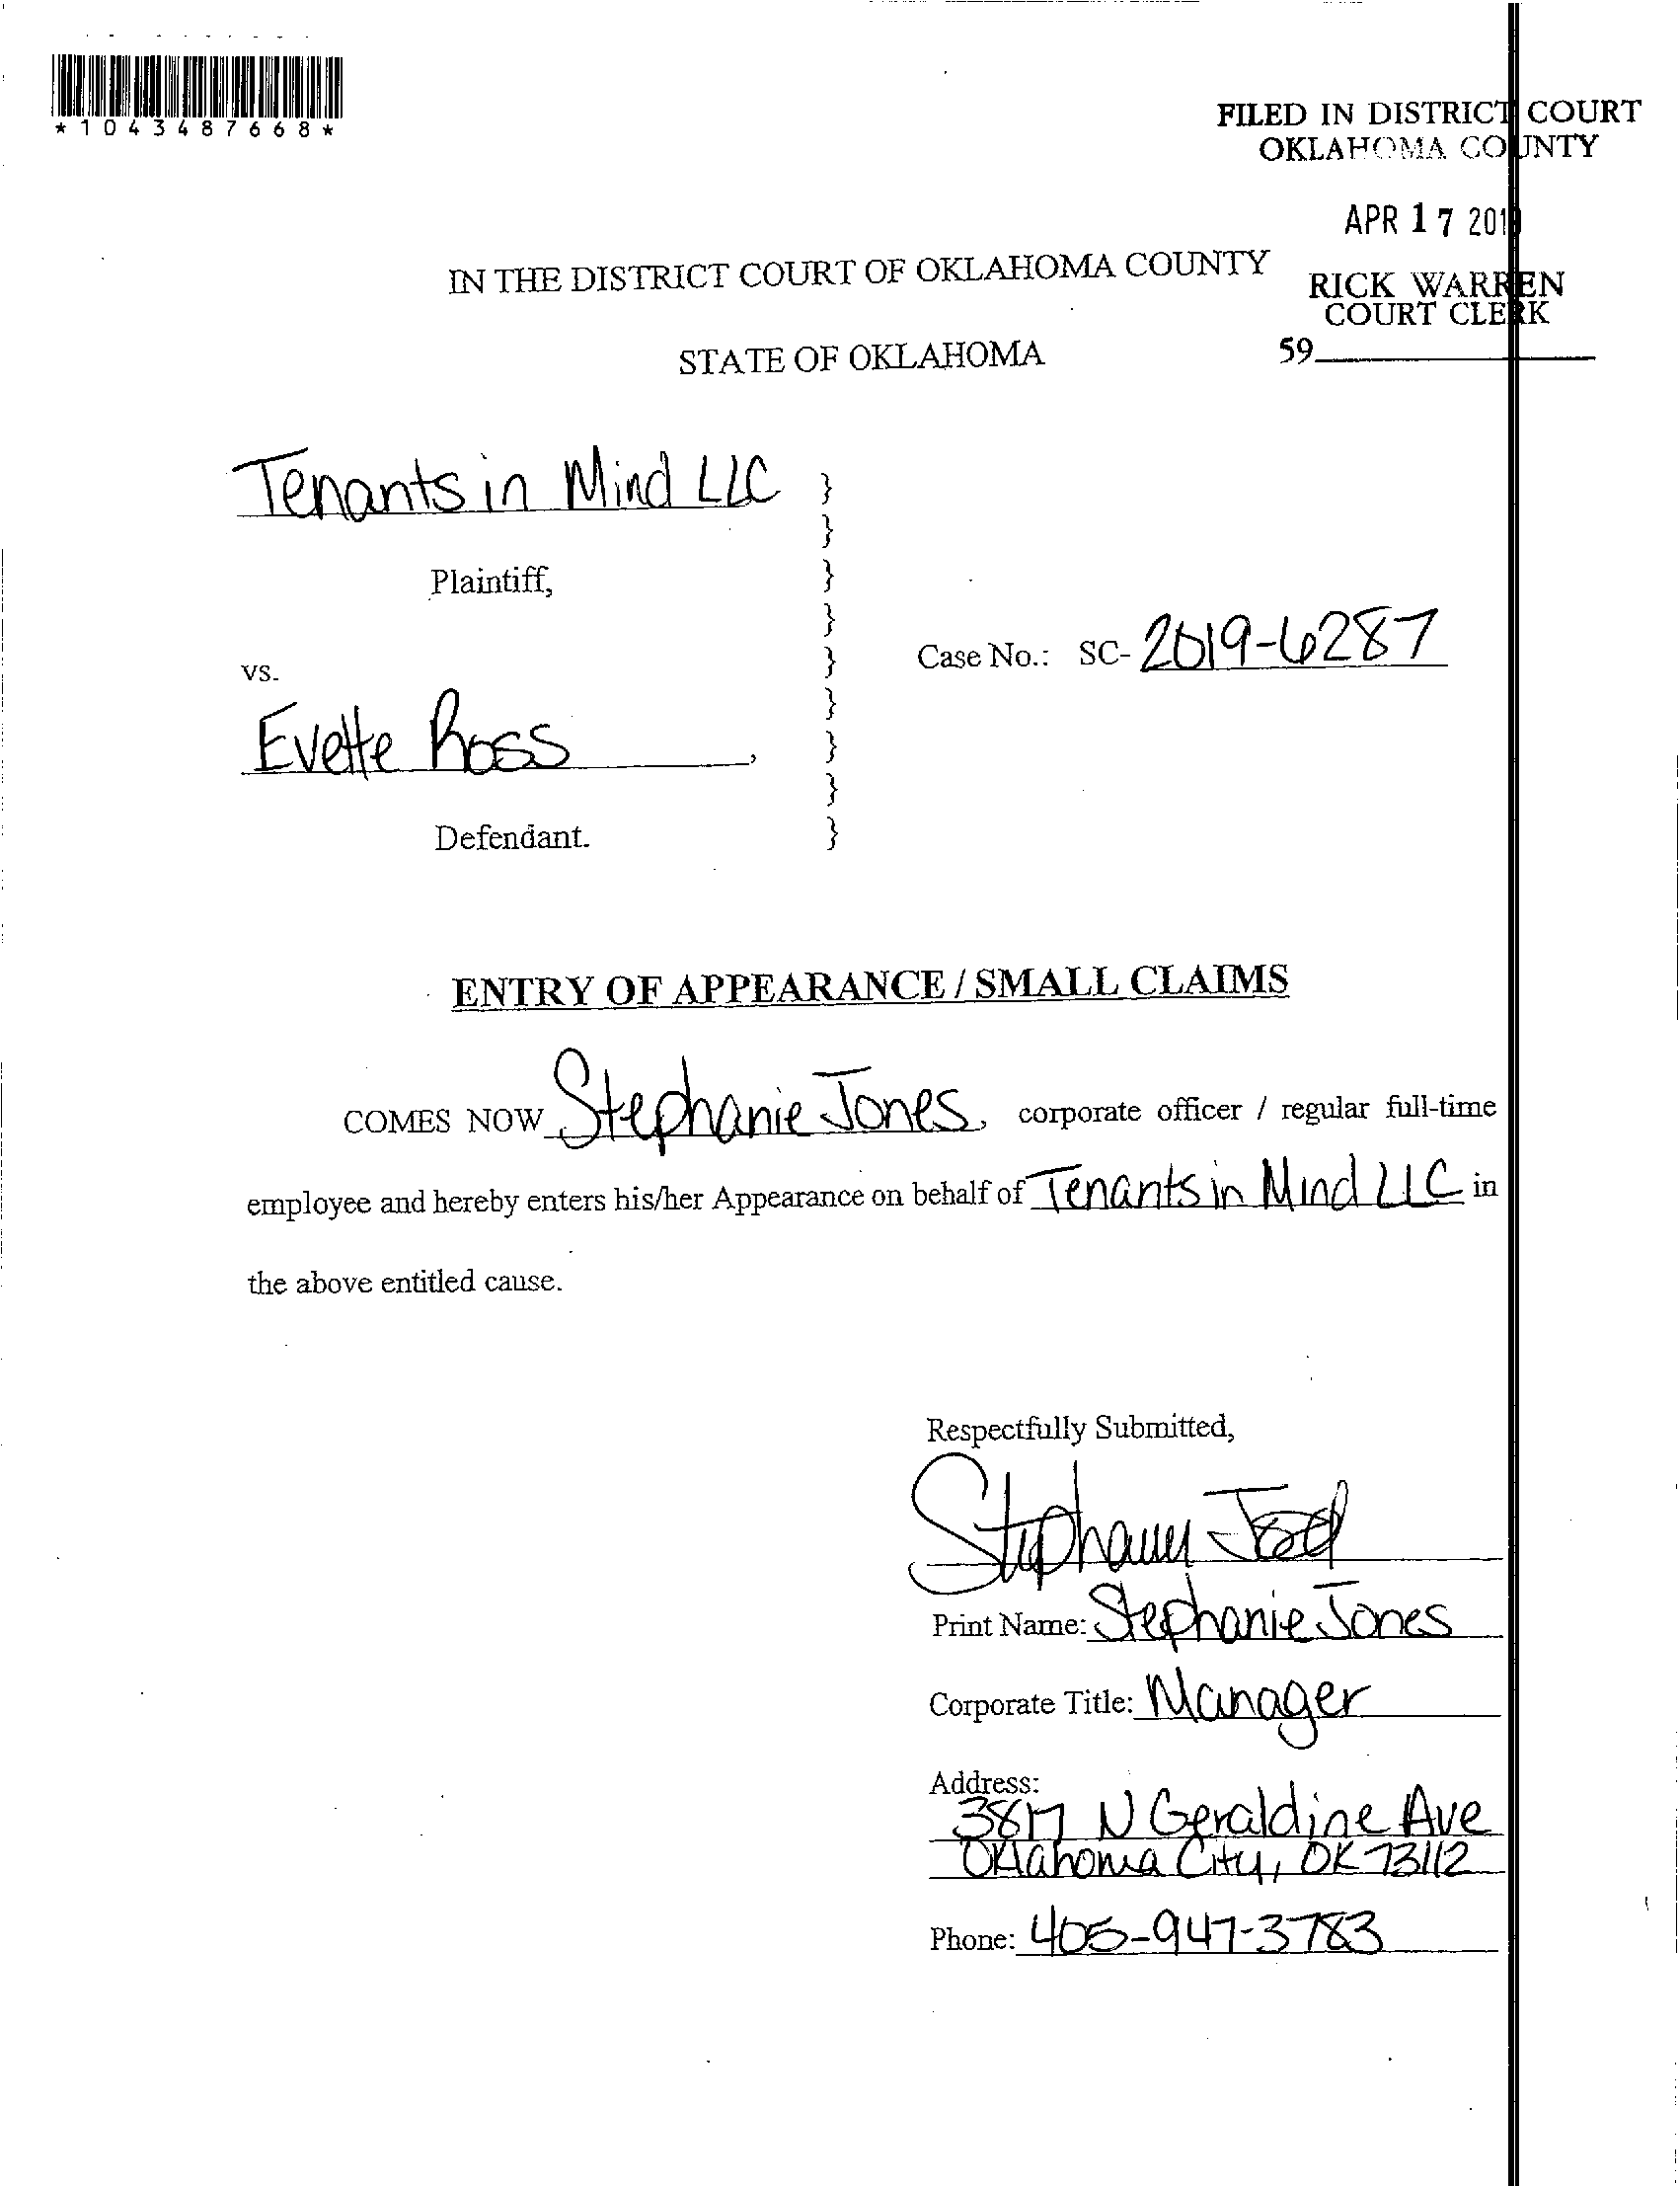 *1043487668*
FILED IN DISTRICT COURT
OKLAHOMA COUNTY
APR 17 2019
RICK WARREN
COURT CLERK
59
IN THE DISTRICT COURT OF OKLAHOMA COUNTY
STATE OF OKLAHOMA
Tenants in Mind LLC }
}
Plaintiff, }
}
vs. } Case No.: SC-2019-6287
}
Evette Ross, }
}
Defendant. }
ENTRY OF APPEARANCE / SMALL CLAIMS
COMES NOW Stephanie Jones, corporate officer / regular full-time
employee and hereby enters his/her Appearance on behalf of Tenants in Mind LLC in
the above entitled cause.
Respectfully Submitted,
Print Name: Stephanie Jones
Corporate Title: Manager
Address:
3817 N Geraldine Ave
Oklahoma City, OK 73112
Phone: 405-947-3783